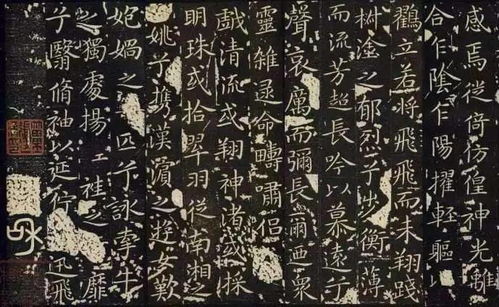 感焉徙倚彷徨神光離
合乍陰乍陽擢輕軀
鶴立若將飛而未翔踐
椒塗之郁烈步衡薄
而流芳超長吟以慕遠兮
聲哀厲而彌長爾迺眾
靈雜遝命疇嘯侶
戲清流或翔神渚或採
明珠或拾翠羽從南湘之
姚兮攜漢濱之遊女歎
匏媧之匹兮詠牽牛
之獨處揚輕袿之靡
兮翳脩袖以延佇迅飛